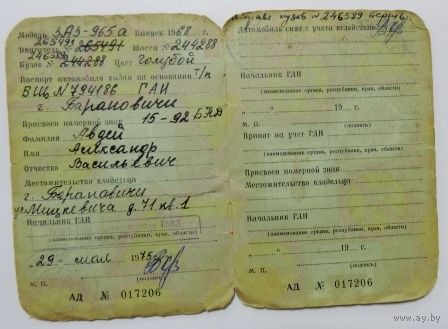 Модель ЗАЗ-965а Выпуск 1968 г.
265491
Двигатель № 265491 Шасси № 244288
246589
Кузов № 244288 Цвет голубой
Паспорт автомобиля выдан на основании Т/п
БЩ N 794186 ГАИ
г. Барановичи
Присвоен номерной знак 15-92 БКД
Фамилия Авдей
Имя Александр
Отчество Васильевич
Местожительство владельца
г. Барановичи
ул. Мицкевича д. 71 кв. 1
Начальник ГАИ
(наименование органа, республики, края, области)
29 мая 1975 г.
М. П. (подпись)
АД № 017206
кузов N 246589
Автомобиль снят с учета вследствие
Начальник ГАИ
(наименование органа, республики, края, области)
19 г.
М. П. (подпись)
Принят на учет ГАИ
(наименование органа, республики, края, области)
Присвоен номерной знак
Местожительство владельца
Начальник ГАИ
(наименование органа, республики, края, области)
19 г.
М. П. (подпись)
АД № 017206
www.ay.by